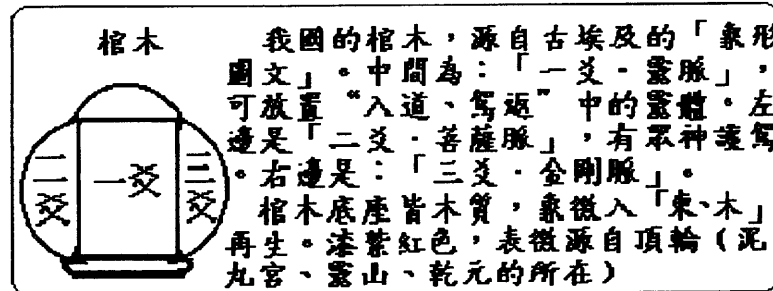 棺木
我國的棺木，源自古埃及的「象形
圖文」。中間為：「一爻．靈脈」，
可放置“入道、駕返”中的靈體。左
邊是「二爻．菩薩脈」，有眾神護駕
。右邊是：「三爻．金剛脈」。
棺木底座皆木質，象徵入「東、木」
再生。漆紫紅色，表徵源自頂輪（泥
丸宮、靈山、乾元的所在）
二爻
一爻
三爻